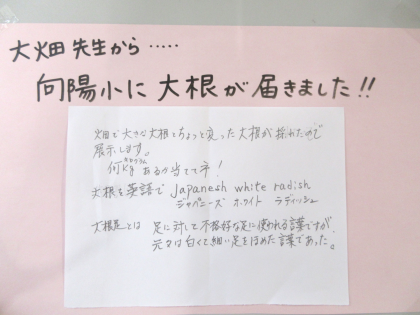 大畑先生から・・・・・
向陽小に大根が届きました!!
畑で大きな大根とちょっと変った大根が採れたので
展示します。
何kgキログラムあるか当てて予!
大根を英語で Japanesh white radish
ジャパニーズ ホワイト ラディッシュ
大根足とは 足に対して不格好な足に使われる言葉ですが
元々は白くて細い足をほめた言葉であった。